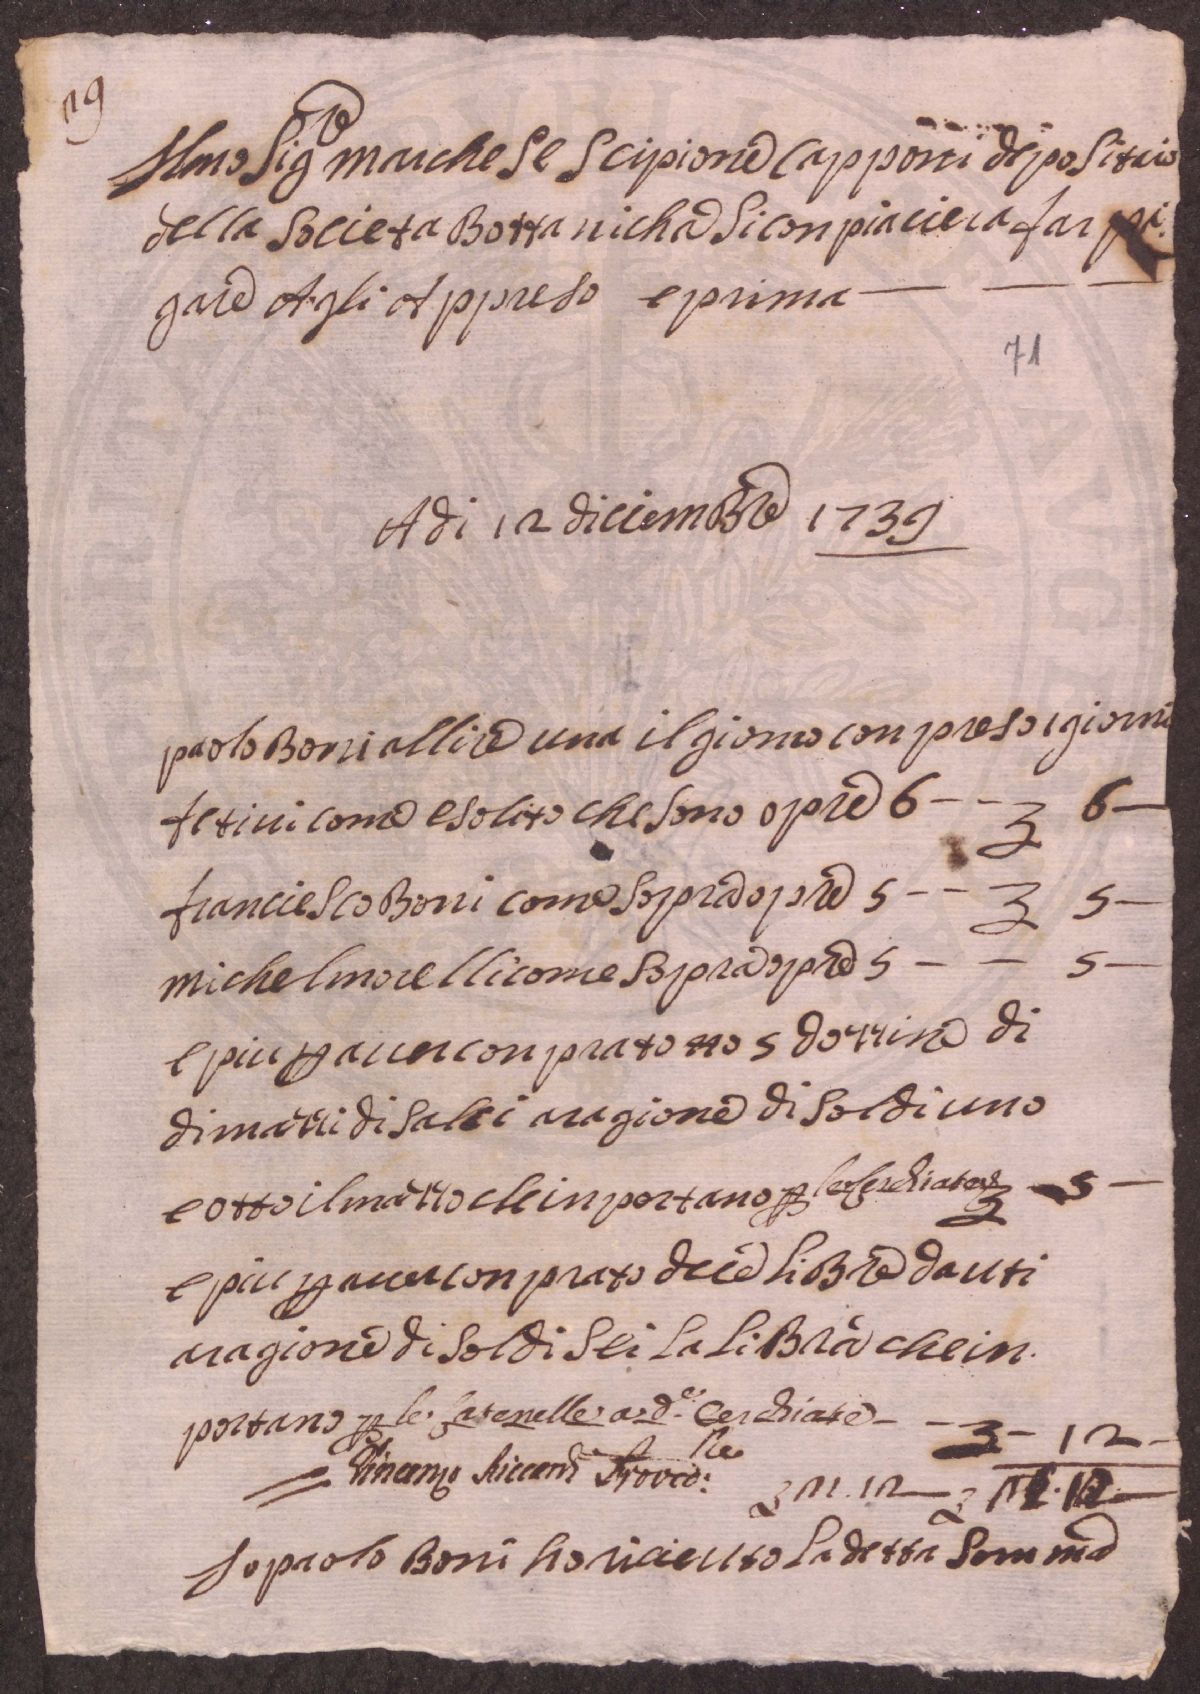 19
Illmo Sig re marchese Scipione Capponi depositaio
della Societa Bottanicha Si conpiaciera far pa.
gare Agli Appreso e prima — — —
71
A di 12 diciembre 1739
paolo Boni allire una il giorno conpreso i giorni
fetivi come e solito che sono opre 6 - - 6 —
franciesco Boni come sopra opre 5 - - 5 —
michel morelli come sopra opre 5 — — 5 —
e piu p aver conprato no 5 dozzine di
di mazzi di salci a ragione di soldi uno
e otto il mazzo che inportano p le cerchiate 5 —
e piu p aver conprato diecie libre dauti
a ragione di soldi sei la libra che in.
portano p le d.e Cerchiate - - 3 - 12 -
Vincenzo Riccardi Provre 21.12 —
Io paolo Boni ho ricieuto la detta somma